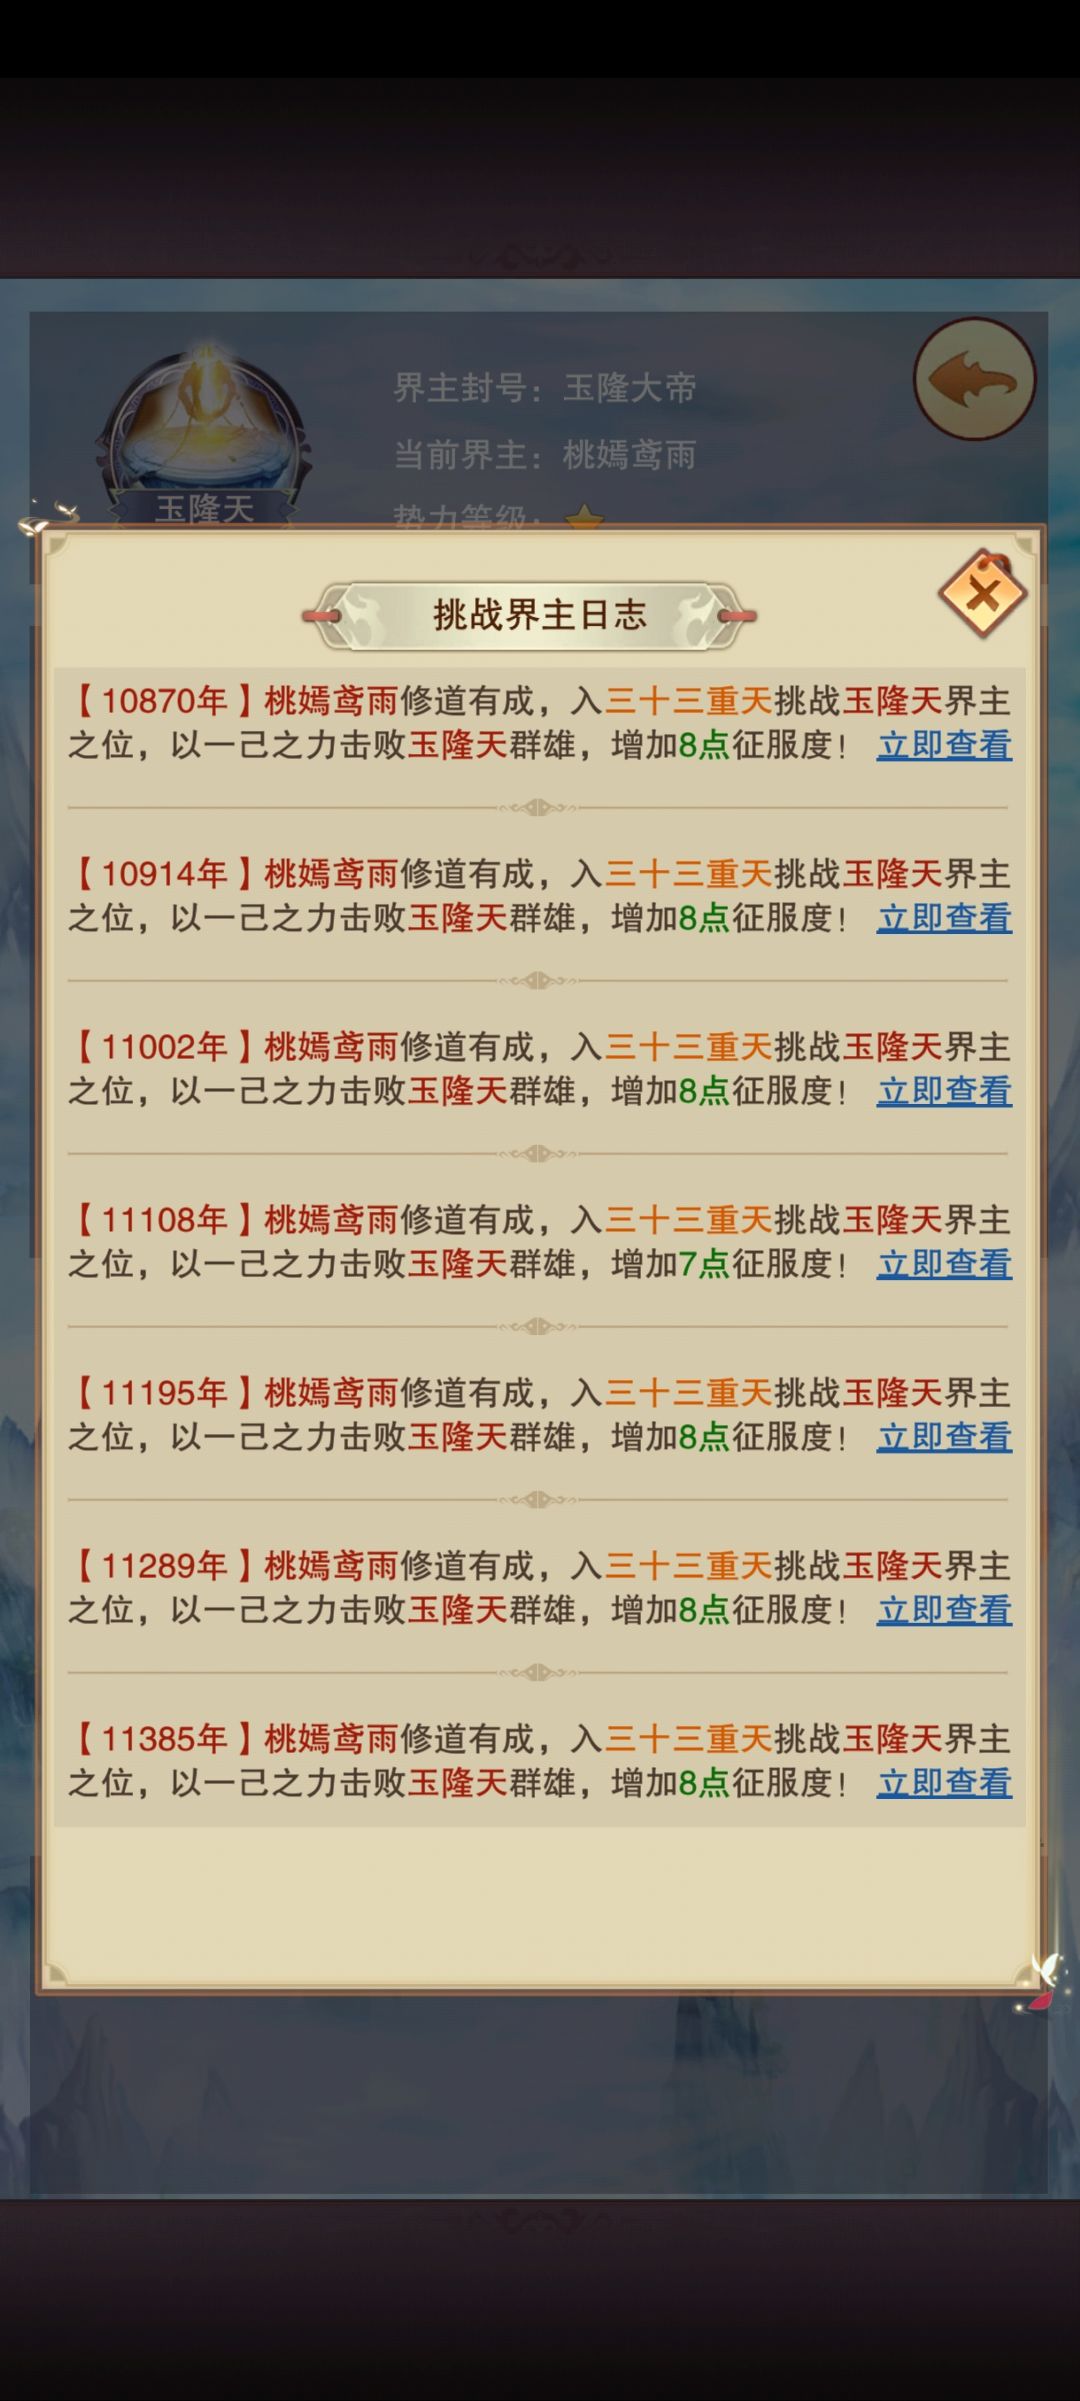 界主封号：玉隆大帝
当前界主：桃嫣鸢雨
玉隆天
势力等级：
挑战界主日志
【10870年】桃嫣鸢雨修道有成，入三十三重天挑战玉隆天界主
之位，以一己之力击败玉隆天群雄，增加8点征服度！ 立即查看
【10914年】桃嫣鸢雨修道有成，入三十三重天挑战玉隆天界主
之位，以一己之力击败玉隆天群雄，增加8点征服度！ 立即查看
【11002年】桃嫣鸢雨修道有成，入三十三重天挑战玉隆天界主
之位，以一己之力击败玉隆天群雄，增加8点征服度！ 立即查看
【11108年】桃嫣鸢雨修道有成，入三十三重天挑战玉隆天界主
之位，以一己之力击败玉隆天群雄，增加7点征服度！ 立即查看
【11195年】桃嫣鸢雨修道有成，入三十三重天挑战玉隆天界主
之位，以一己之力击败玉隆天群雄，增加8点征服度！ 立即查看
【11289年】桃嫣鸢雨修道有成，入三十三重天挑战玉隆天界主
之位，以一己之力击败玉隆天群雄，增加8点征服度！ 立即查看
【11385年】桃嫣鸢雨修道有成，入三十三重天挑战玉隆天界主
之位，以一己之力击败玉隆天群雄，增加8点征服度！ 立即查看